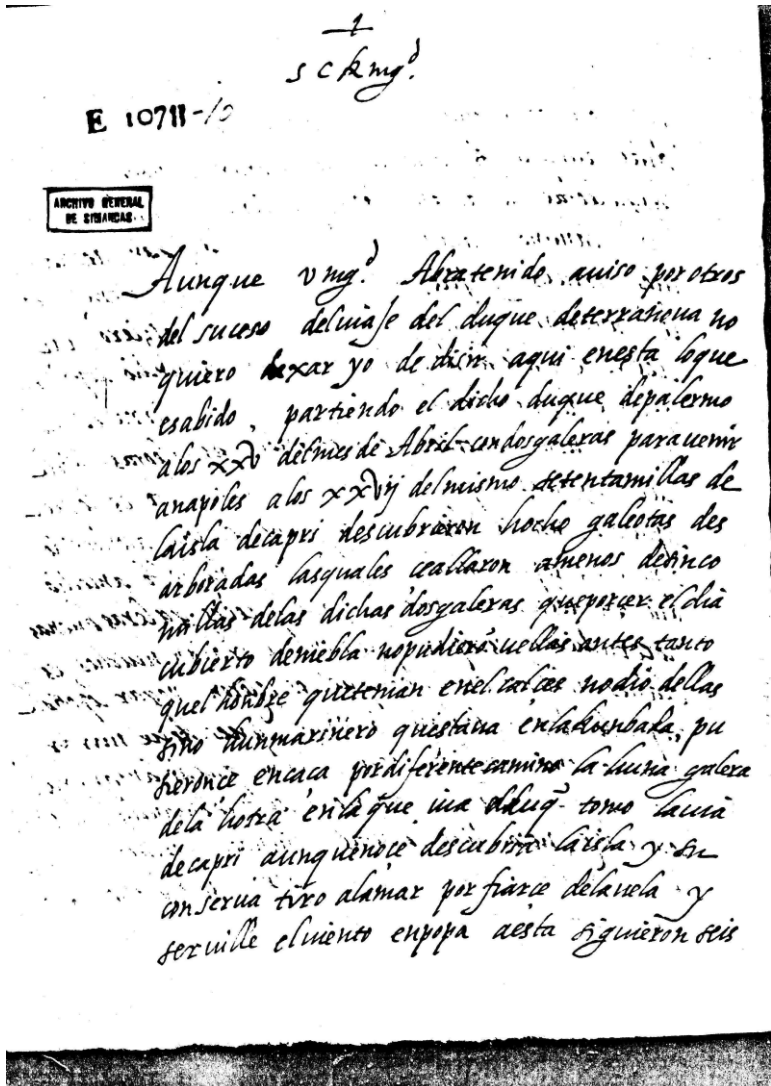 1
S C R mgd.
E 10711-10
ARCHIVO GENERAL
DE SIMANCAS
Aunque v mgd. Abra tenido auiso por otros
del suceso del uiaje del duque de terranoua no
quiero dexar yo de disir aqui en esta lo que
e sabido, partiendo el dicho duque de palermo
a los xxv del mes de Abril con dos galeras para uenir
a napoles a los xxvij del mismo setenta millas de
la isla de capri descubrieron hocho galeotas des
arboradas las quales ce allaron a menos de sinco
millas de las dichas dos galeras que por cer el dia
cubierto de niebla no pudierõ uellas antes tanto
quel honbre que tenian en el calces no dio dellas
sino hun marinero questaua en la
sieronce en caca por diferente camino la huna galera
de la hotra en la que iua el duq̃ tomo la uia
de capri aunque no ce descubria la isla y su
conserua tiro a la mar por fiarce de la uela y
seruille el uiento en popa a esta siguieron seis